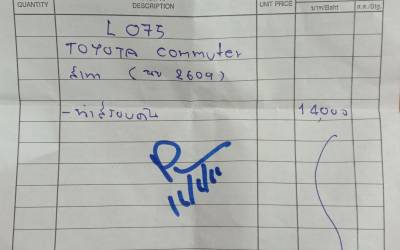 QUANTITY DESCRIPTION UNIT PRICE บาท/Baht ส.ต./Stg.
L 075
TOYOTA commuter
สีเทา (นข 2609)
- ทำสีรอบคัน 14,000